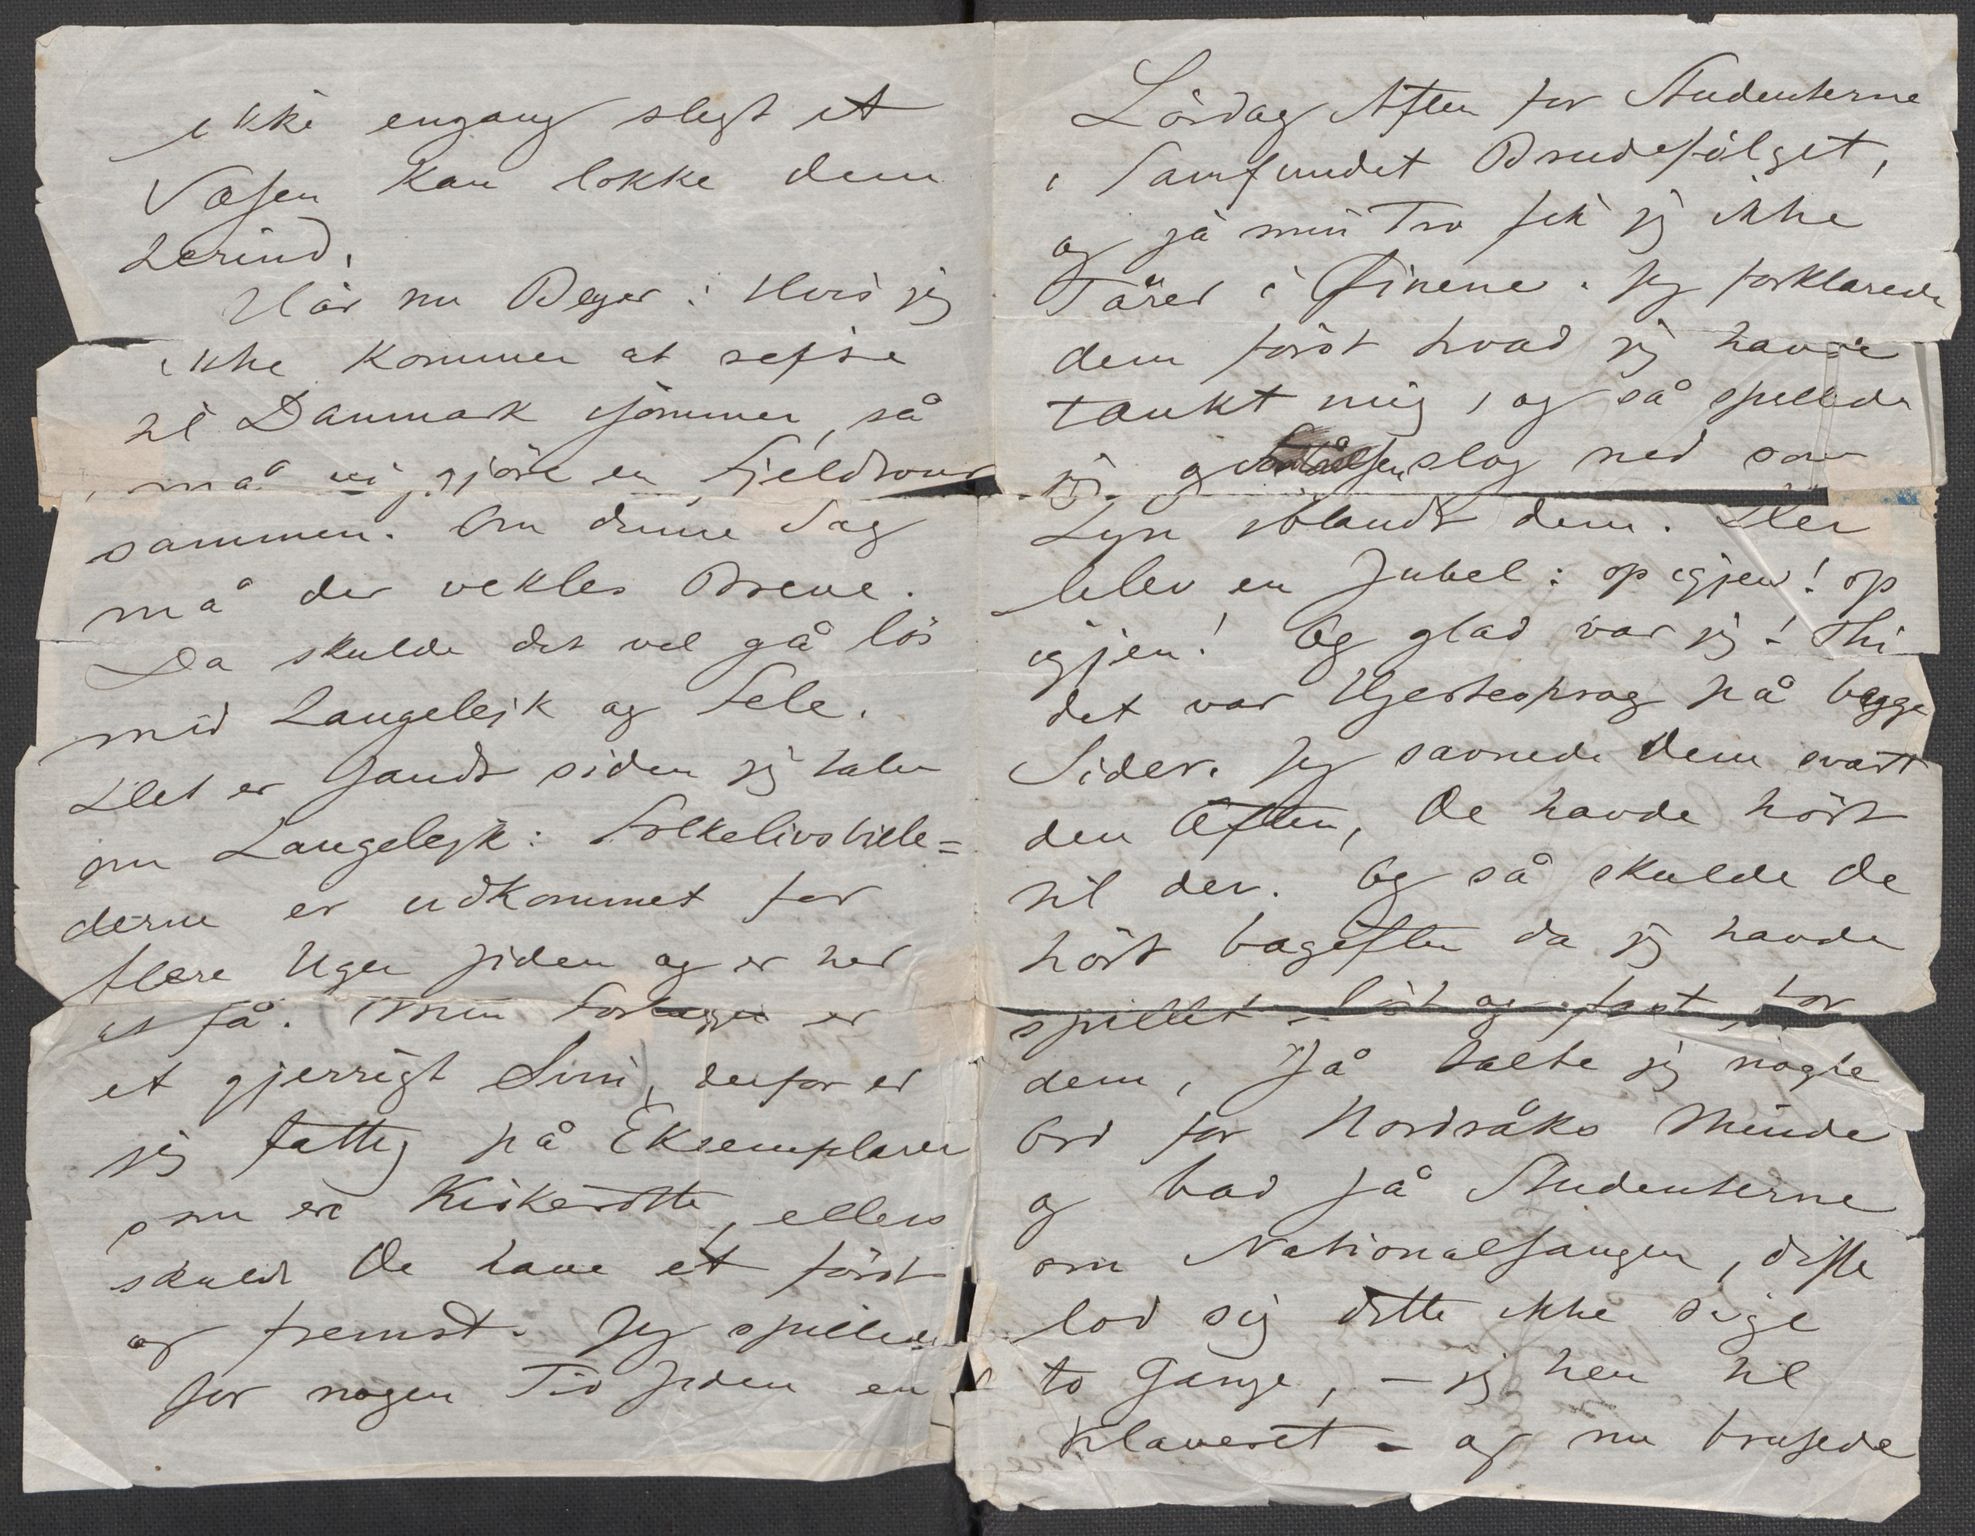 ikke engang slegt et
Væsen kan lokke dem
herind.
Når nu Beyer: Hvis jeg
ikke kommer at rejse
til Danmark isommer, så
må vi gjöre en Fjeldtour
sammen. Om denne Sag
må der vekles Breve.
Da skulde det vel gå lös
med Langelejk og Fele.
Det er sandt siden jeg taler
om Langelejk: Folkelivsbille=
derne er udkommet for
flere Uger siden og er her
at få. Min Forlægger er
et gjerrigt Svin, derfor er
jeg fattig på Eksemplarer
som en Kirkerotte, ellers
skulde De have et först
og fremst. Jeg spillede
for nogen Tid siden en
Lördag Aften for Studenterne
i Samfundet Brudefölget,
og på min Tro fik jeg ikke
Tårer i Öinene. Jeg forklarede
dem först hvad jeg havde
tænkt mig, og så spillede
jeg og slog ned som
Lyn iblandt dem. Der
blev en Jubel: op igjen! op
igjen! Og glad var jeg! Thi
det var Hjertesprog på begge
Sider. Jeg savnede Dem svært
den Aften, De havde hört
til der. Og så skulde De
hört bagefter da jeg havde
spillet löst og fast for
dem, så talte jeg nogle
Ord for Nordråks Minde
og bad så Studenterne
om Nationalsangen, disse
lod sig dette ikke sige
to Gange, – jeg hen til
Klaveret – og nu brusede